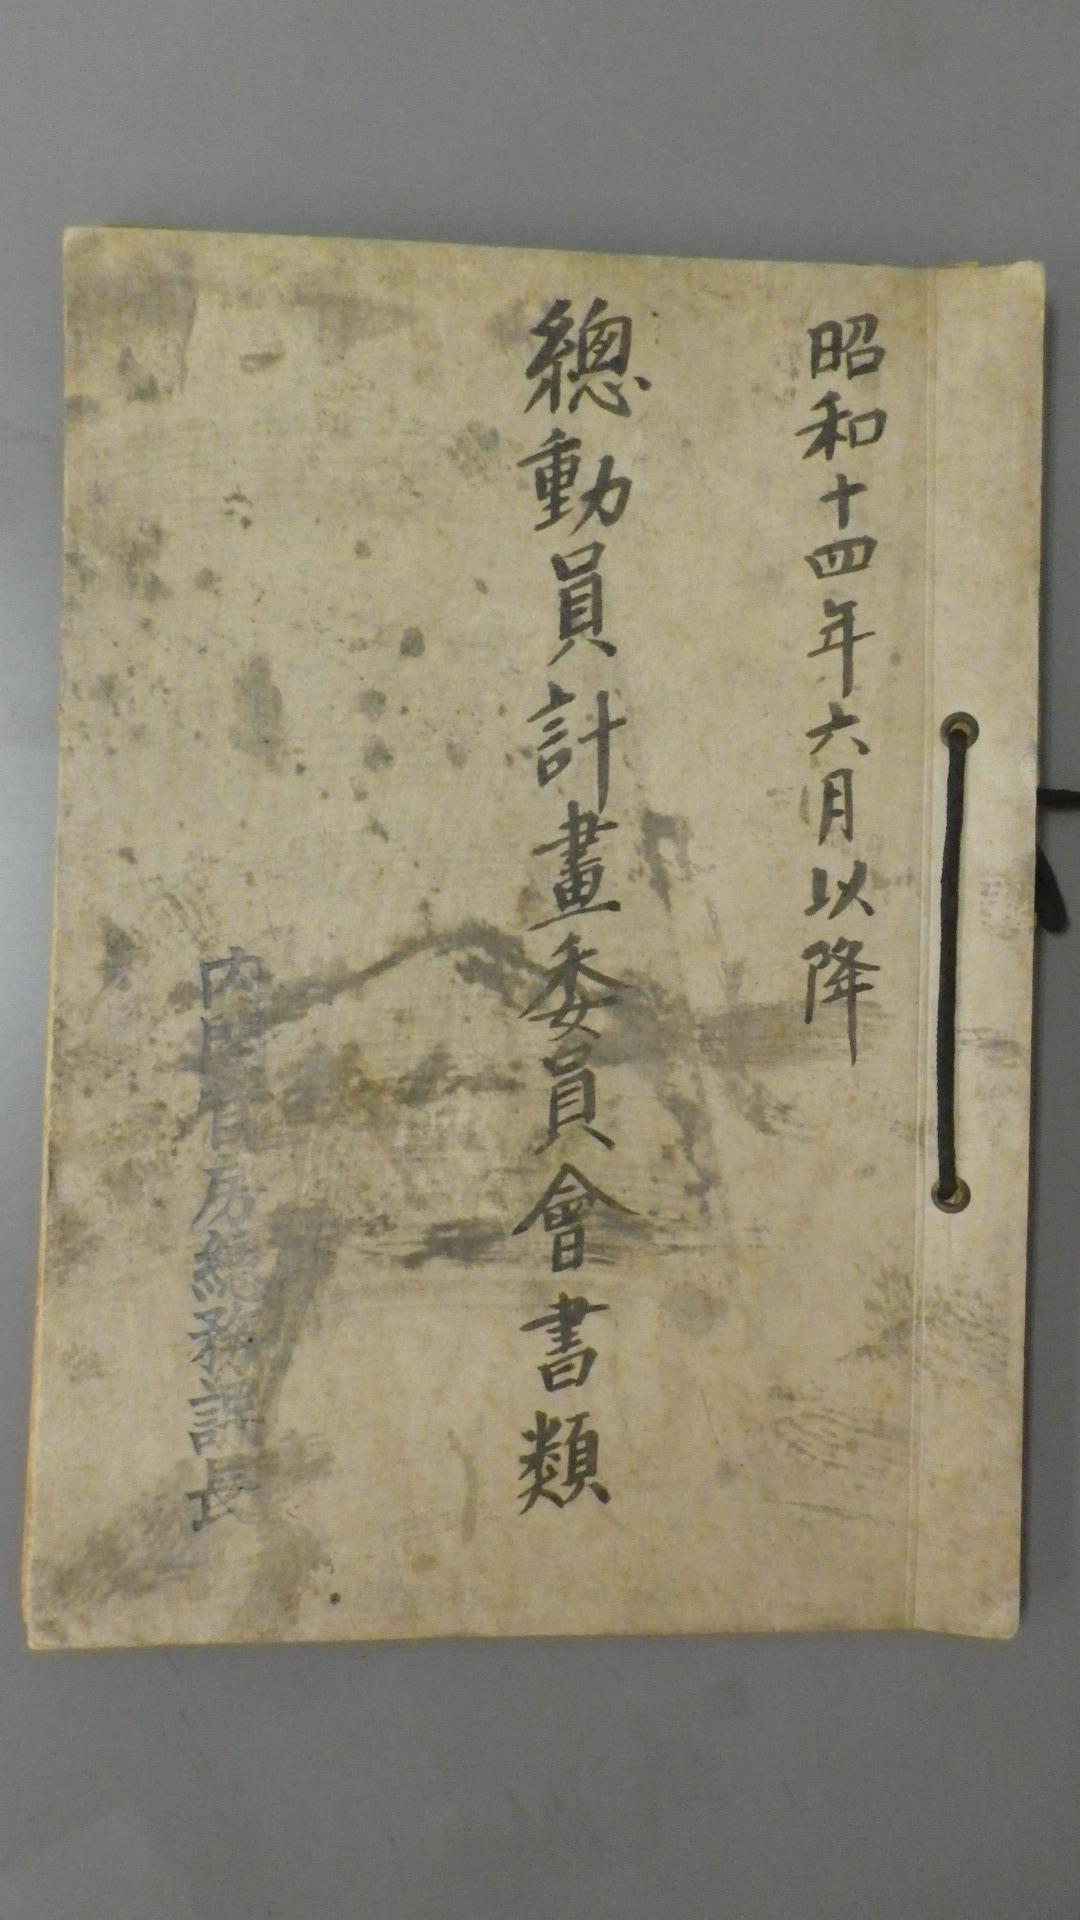 昭和十四年六月以降
總動員計畫委員會書類
内閣官房總務課長